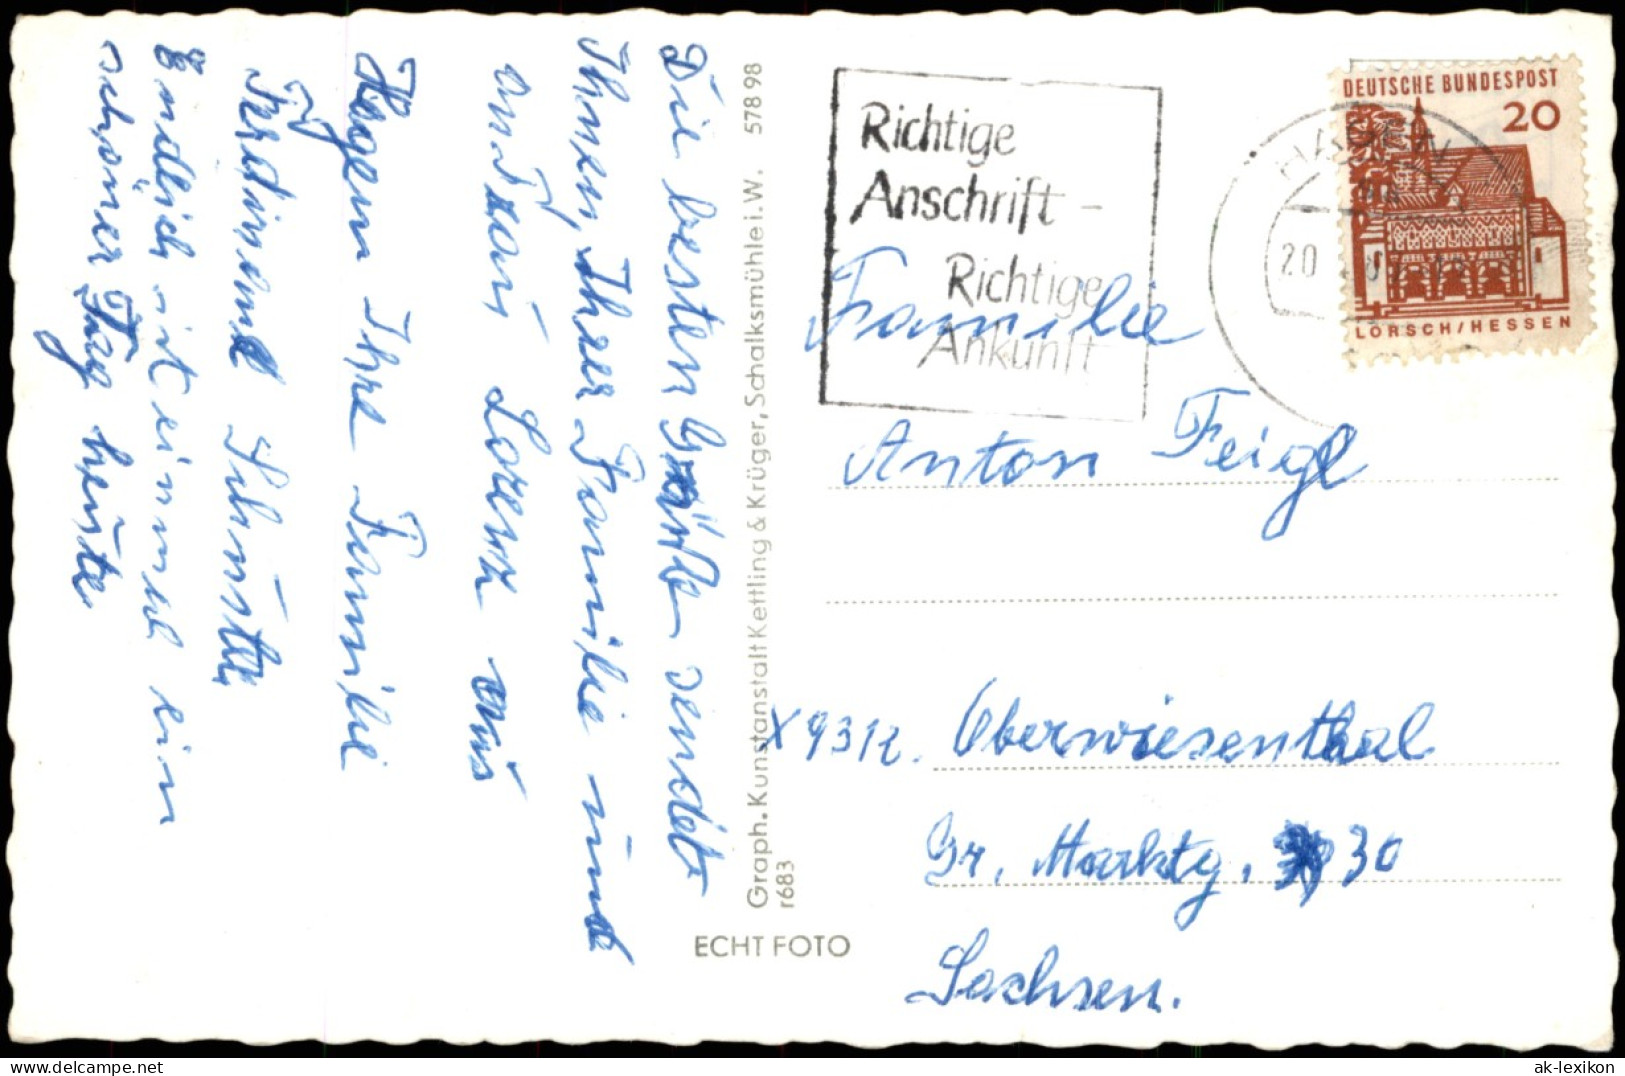 Die besten Grüße sendet
Ihnen, Ihrer Familie und
und Frau Lorenz aus
Hagen Ihre Familie
Ferdinand Schuster
Endlich ist einmal ein
schöner Tag heute
Graph. Kunstanstalt Kettling & Krüger, Schalksmühle i. W. 578 98
r683
ECHT FOTO
Richtige
Anschrift –
Richtige
Ankunft
HAGEN
20
DEUTSCHE BUNDESPOST
20
LORSCH/HESSEN
Familie
Anton Feigl
X 9312. Oberwiesenthal
Gr. Marktg. 30
Sachsen.
ak-lexikon